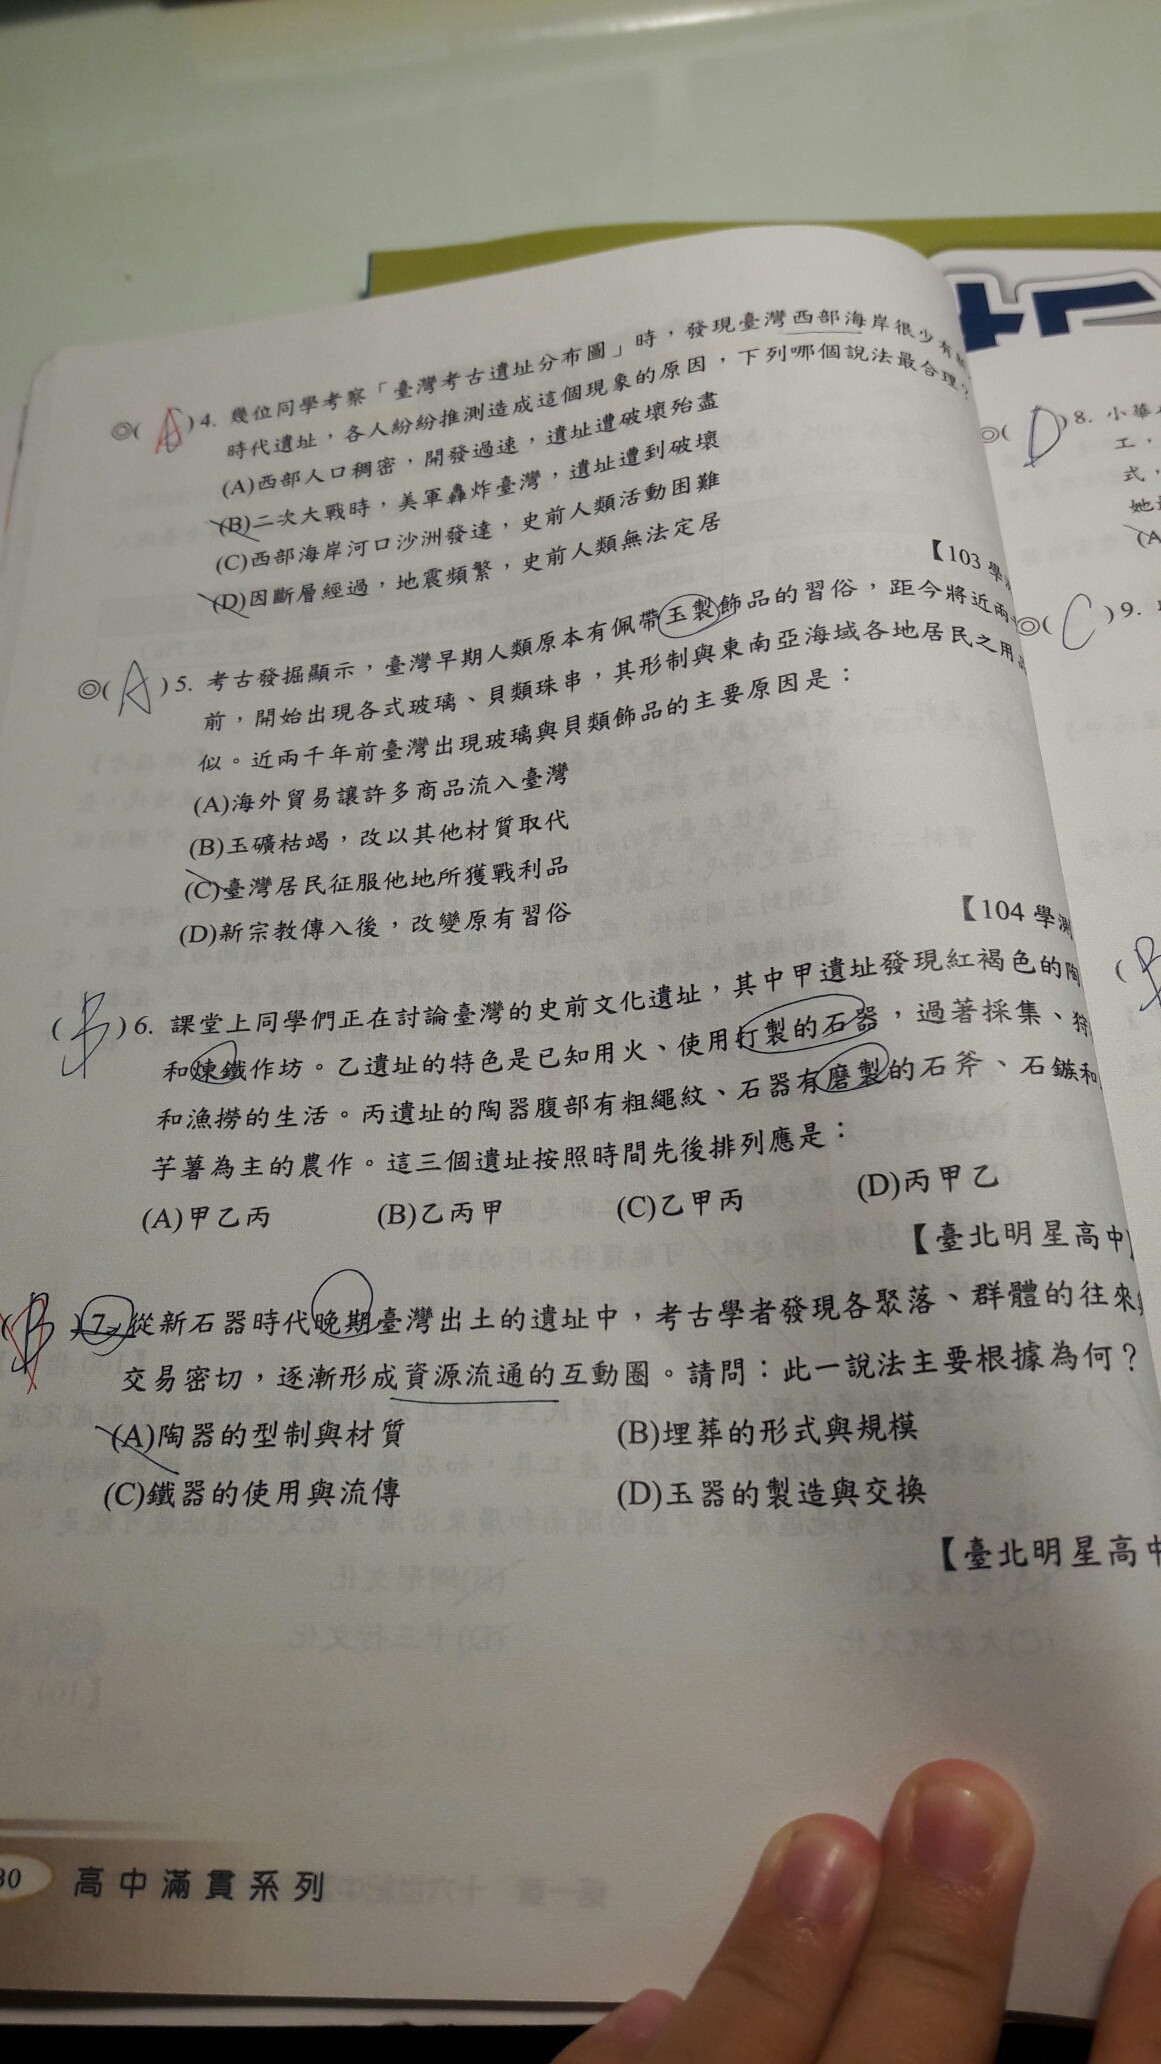 ◎( A )4. 幾位同學考察「臺灣考古遺址分布圖」時，發現臺灣西部海岸很少有
時代遺址，各人紛紛推測造成這個現象的原因，下列哪個說法最合理？
(A)西部人口稠密，開發過速，遺址遭破壞殆盡
(B)二次大戰時，美軍轟炸臺灣，遺址遭到破壞
(C)西部海岸河口沙洲發達，史前人類活動困難
(D)因斷層經過，地震頻繁，史前人類無法定居
【103 學
◎( A )5. 考古發掘顯示，臺灣早期人類原本有佩帶玉製飾品的習俗，距今將近兩
前，開始出現各式玻璃、貝類珠串，其形制與東南亞海域各地居民之用
似。近兩千年前臺灣出現玻璃與貝類飾品的主要原因是：
(A)海外貿易讓許多商品流入臺灣
(B)玉礦枯竭，改以其他材質取代
(C)臺灣居民征服他地所獲戰利品
(D)新宗教傳入後，改變原有習俗
【104 學測
( B )6. 課堂上同學們正在討論臺灣的史前文化遺址，其中甲遺址發現紅褐色的陶
和煉鐵作坊。乙遺址的特色是已知用火、使用打製的石器，過著採集、狩
和漁撈的生活。丙遺址的陶器腹部有粗繩紋、石器有磨製的石斧、石鏃和
芋薯為主的農作。這三個遺址按照時間先後排列應是：
(A)甲乙丙 (B)乙丙甲 (C)乙甲丙 (D)丙甲乙
【臺北明星高中】
( B )7. 從新石器時代晚期臺灣出土的遺址中，考古學者發現各聚落、群體的往來
交易密切，逐漸形成資源流通的互動圈。請問：此一說法主要根據為何？
(A)陶器的型制與材質 (B)埋葬的形式與規模
(C)鐵器的使用與流傳 (D)玉器的製造與交換
【臺北明星高中
30 高中滿貫系列
◎( D )8. 小華
工，
式，
她
(A
◎( C )9.
( B